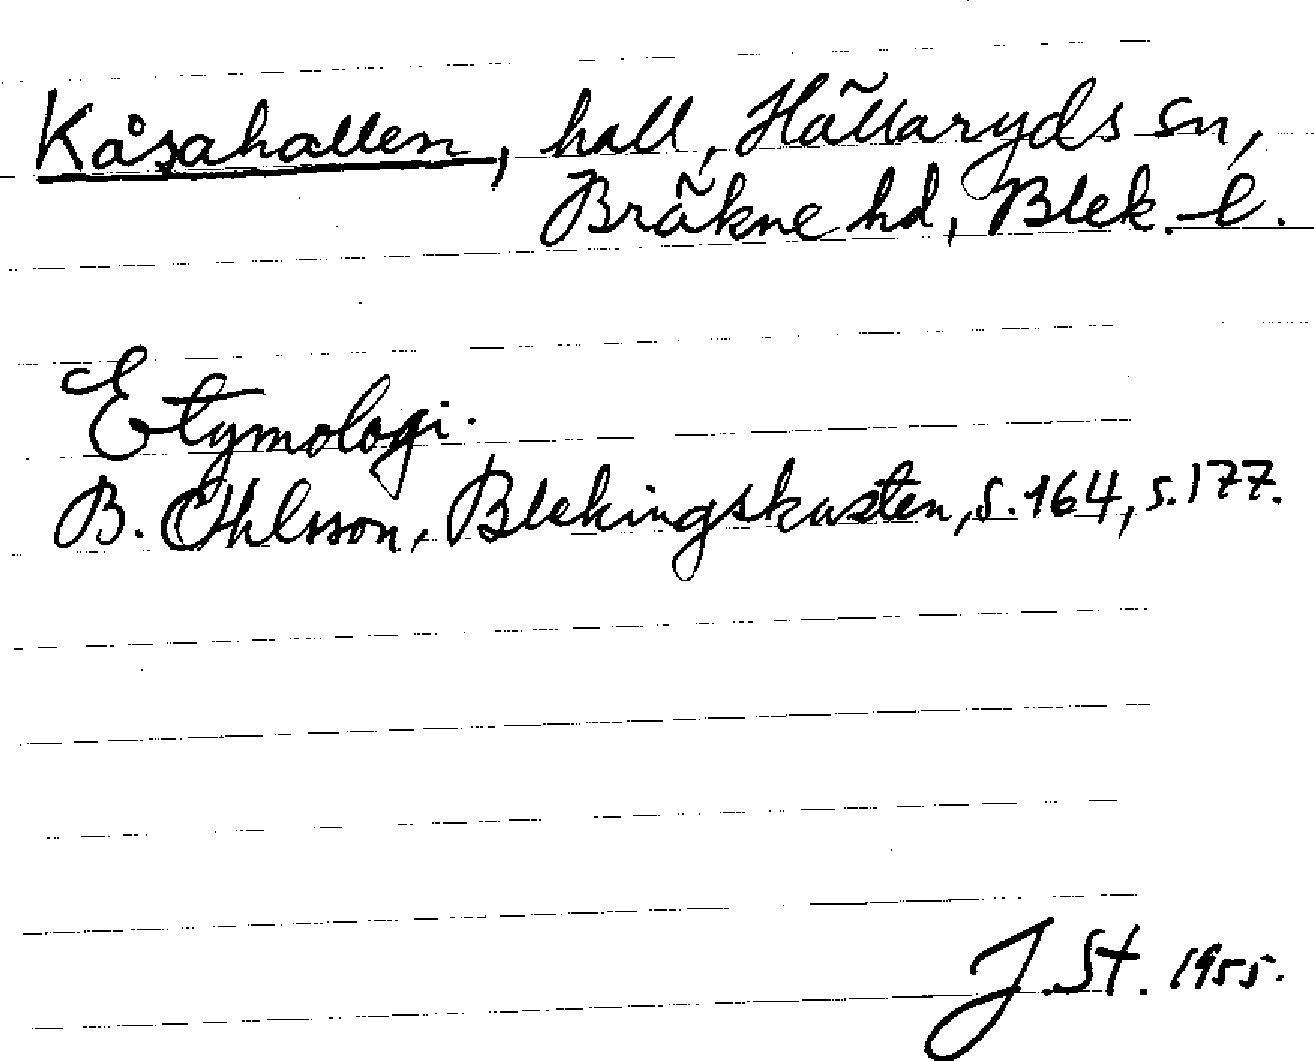 Kåsahallen, hall, Hällaryds sn,
Bräkne hd, Blek. l.
Etymologi.
B. Ohlsson, Blekingskusten, s. 164, s. 177.
J. St. 1955.